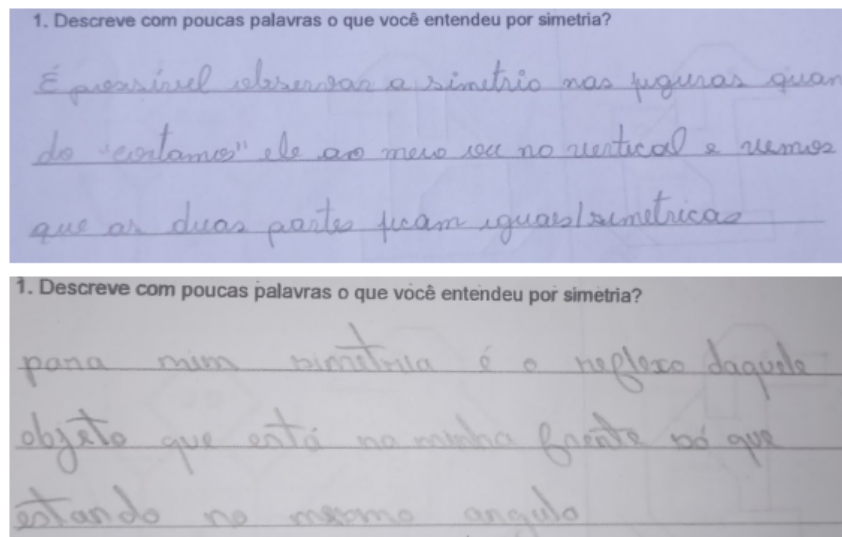 1. Descreve com poucas palavras o que você entendeu por simetria?
É possível observar a simetrio nas figuras quan
do "cortamos" ele ao meio ou no vertical e vemos
que as duas partes ficam iguaes/simetricas
1. Descreve com poucas palavras o que você entendeu por simetria?
para mim simetria é o reflexo daquele
objeto que está na minha frente só que
estando no mesmo angulo